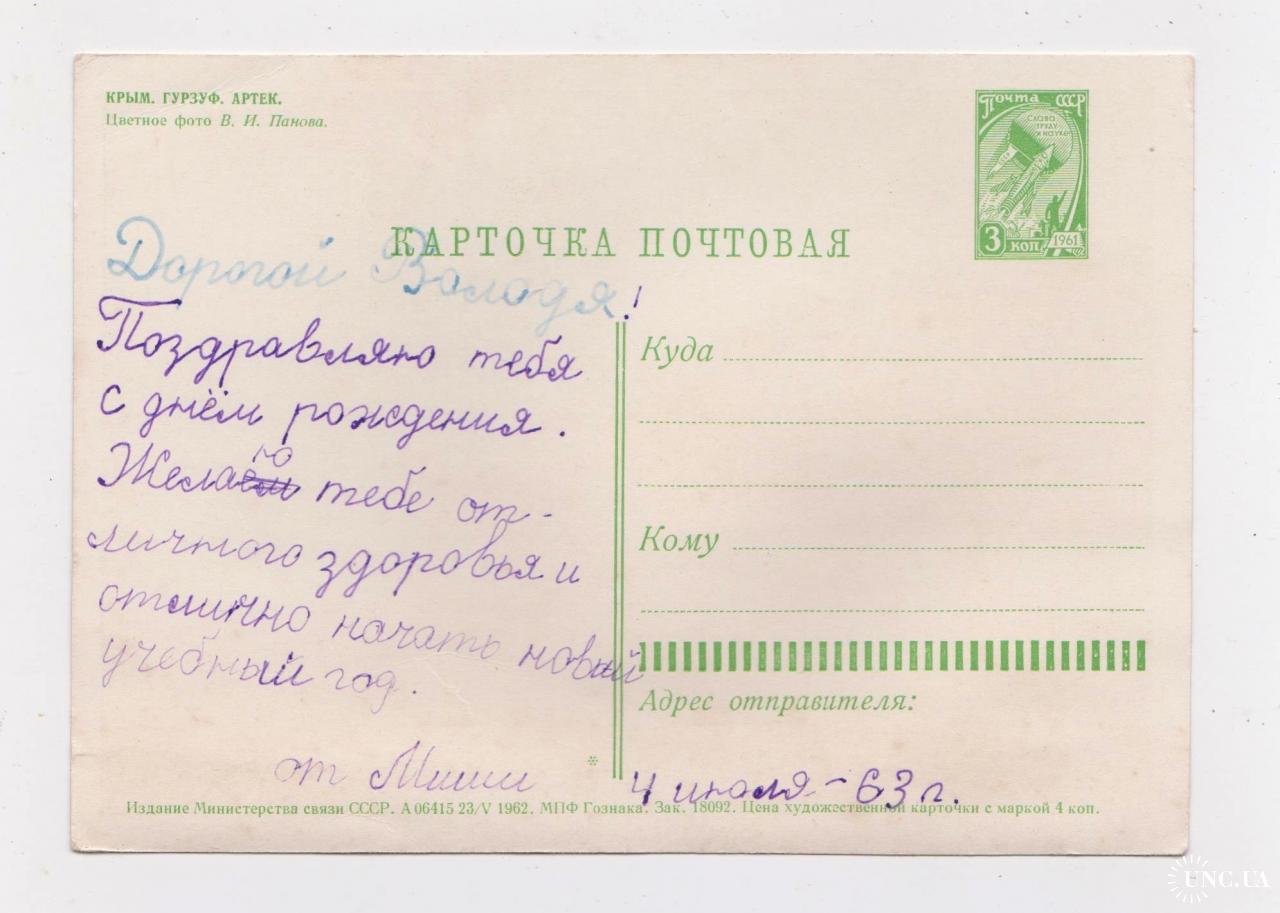 КРЫМ. ГУРЗУФ. АРТЕК.
Цветное фото В. И. Панова.
Почта СССР
СЛАВА
ТРУДУ
И НАУКЕ!
3 КОП
1961
КАРТОЧКА ПОЧТОВАЯ
Дорогой Володя!
Поздравляю тебя
с днём рождения.
Желаю тебе от-
личного здоровья и
отлично начать новый
учебный год.
от Миши
Куда
Кому
Адрес отправителя:
4 июля – 63 г.
*
Издание Министерства связи СССР. А 06415 23/V 1962. МПФ Гознака. Зак. 18092. Цена художественной карточки с маркой 4 коп.
UNC.UA